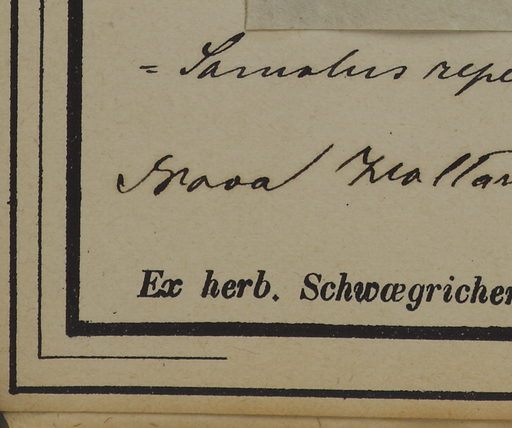 = Samolus repe
Nova Hollan
Ex herb. Schwægrichen